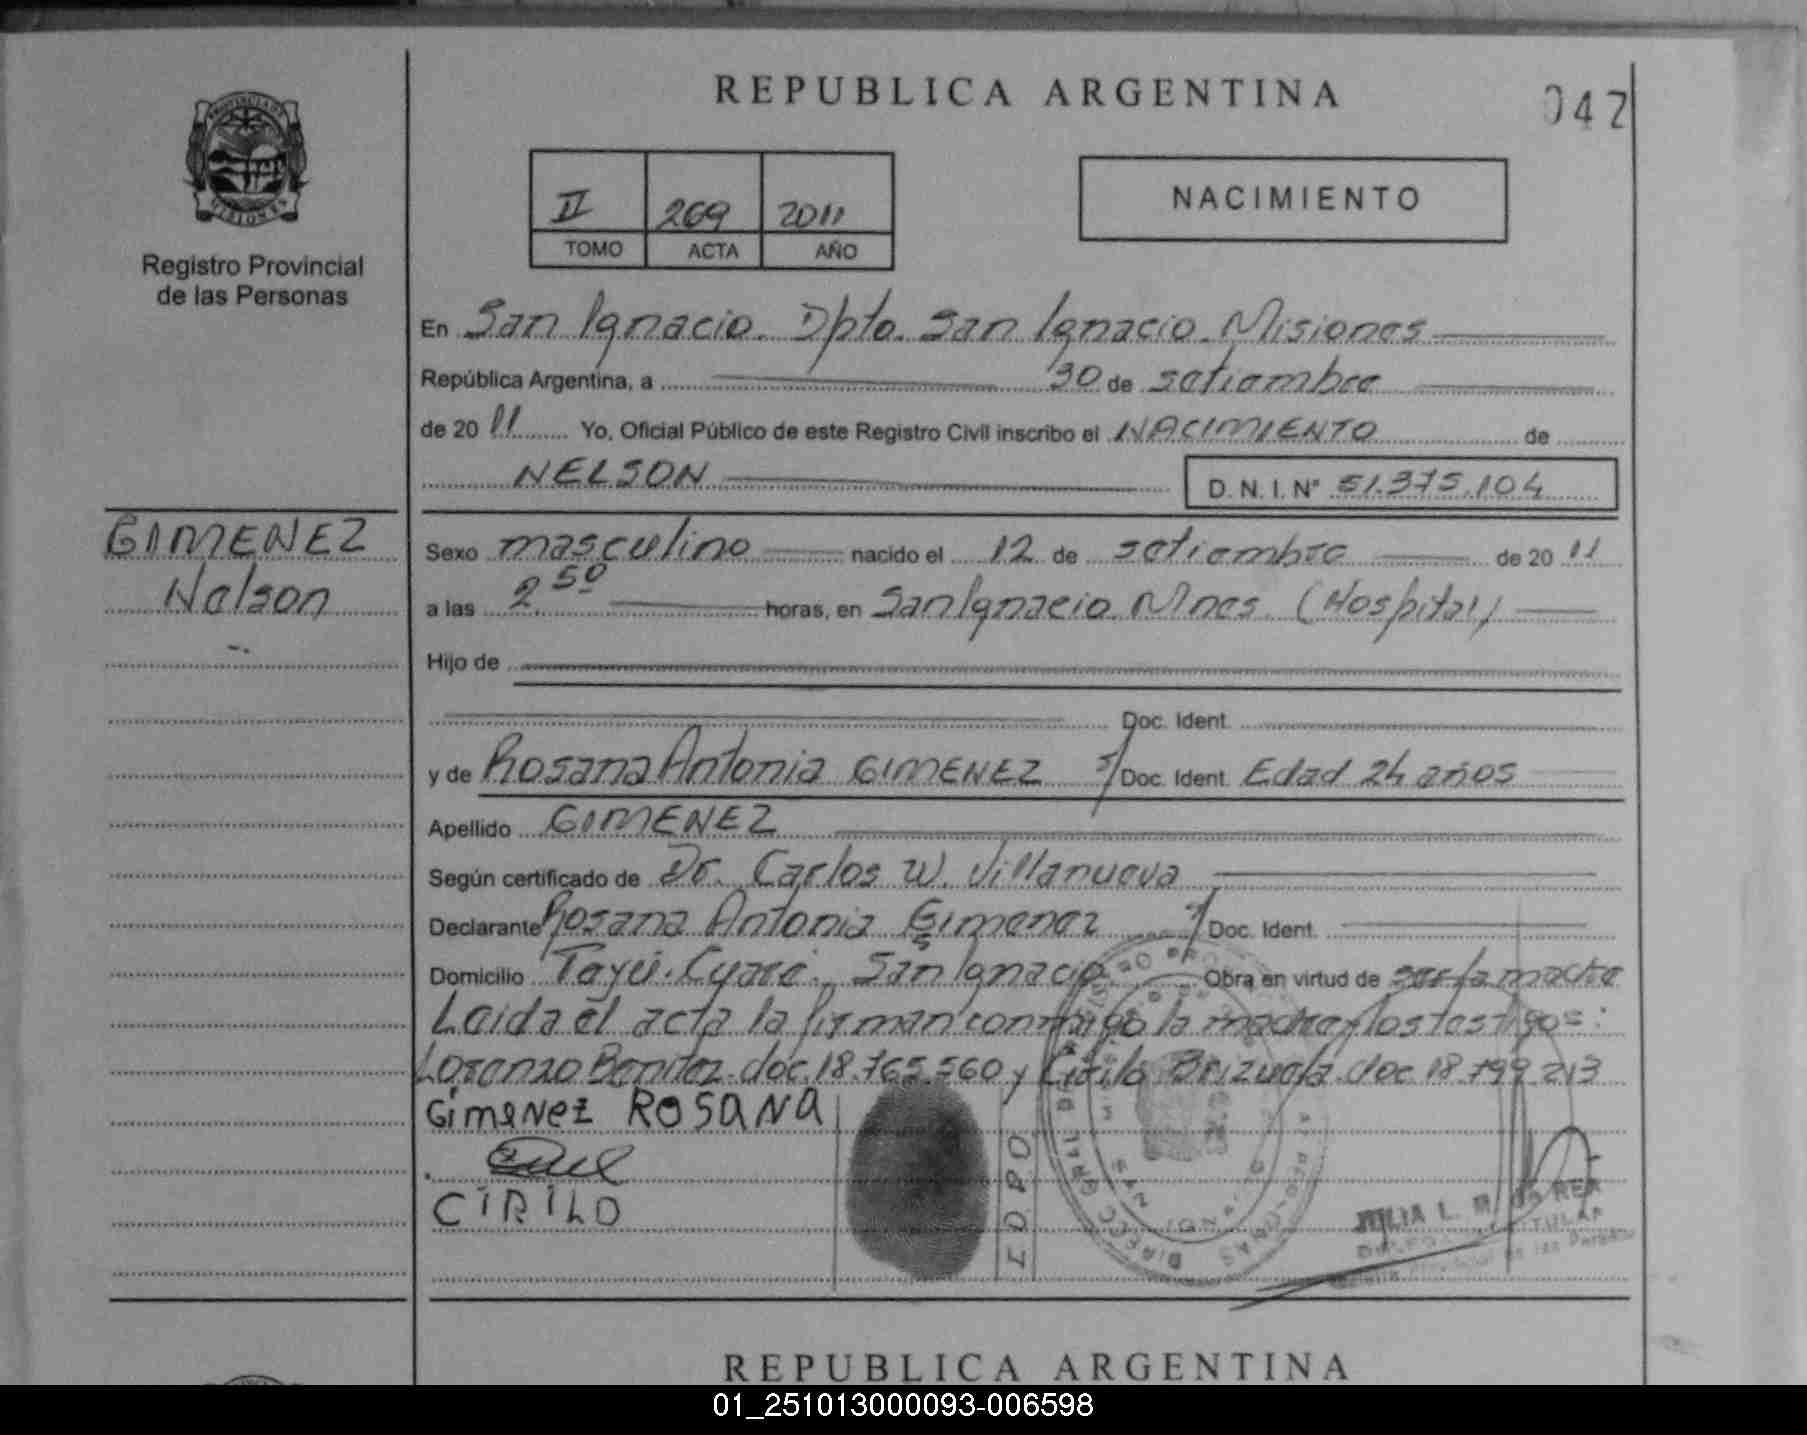 REPUBLICA ARGENTINA
047
II 269 2011
TOMO ACTA AÑO
NACIMIENTO
PROVINCIA DE
MISIONES
Registro Provincial
de las Personas
En San Ignacio. Dpto. San Ignacio. Misiones
República Argentina, a 30 de setiembre
de 2011 Yo, Oficial Público de este Registro Civil inscribo el NACIMIENTO de
NELSON D. N. I. Nº 51.375.104
GIMENEZ
Nelson
Sexo masculino nacido el 12 de setiembre de 2011
a las 2 50 horas, en San Ignacio. Mnes. (Hospital)
Hijo de
Doc. Ident.
y de Rosana Antonia GIMENEZ s/ Doc. Ident. Edad 24 años
Apellido GIMENEZ
Según certificado de Dr. Carlos W. Villanueva
Declarante Rosana Antonia Gimenez s/ Doc. Ident.
Domicilio Teyú-Cuaré. San Ignacio Obra en virtud de ser la madre
Leida el acta la firman conmigo la madre y los testigos:
Lorenzo Benitez. doc. 18.765.560 y Cirilo Brizuela. doc. 18.799.213
Gimenez ROSANA
CIRILO
JULIA L. M.
REPUBLICA ARGENTINA
01_251013000093-006598